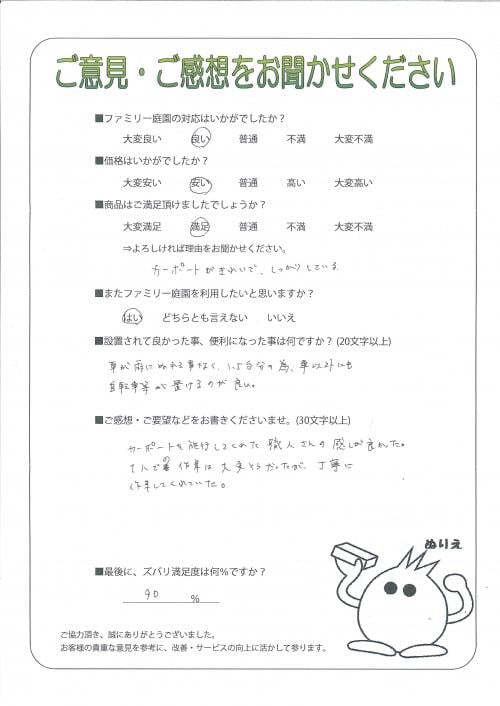 ご意見・ご感想をお聞かせください
■ファミリー庭園の対応はいかがでしたか？
大変良い 良い 普通 不満 大変不満
■価格はいかがでしたか？
大変安い 安い 普通 高い 大変高い
■商品はご満足頂けましたでしょうか？
大変満足 満足 普通 不満 大変不満
⇒よろしければ理由をお聞かせください。
カーポートがきれいで、しっかりしている
■またファミリー庭園を利用したいと思いますか？
はい どちらとも言えない いいえ
■設置されて良かった事、便利になった事は何ですか？(20文字以上)
車が雨にぬれる事なく、1.5台分の為、車以外にも
自転車等が置けるのが良い。
■ご感想・ご要望などをお書きくださいませ。(30文字以上)
カーポートを施行してくれた職人さんの感じが良かった。
1人での作業は大変そうだったが、丁寧に
作業してくれていた。
ぬりえ
■最後に、ズバリ満足度は何%ですか？
90 %
ご協力頂き、誠にありがとうございました。
お客様の貴重な意見を参考に、改善・サービスの向上に活かして参ります。